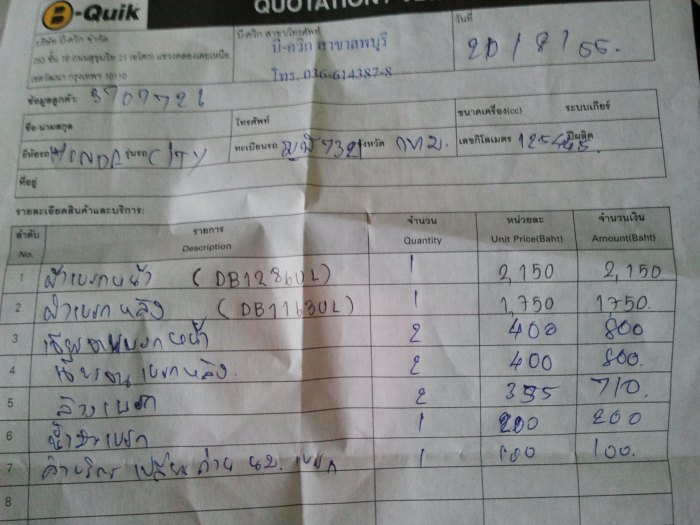 B-Quik
QUOTATION
บริษัท บี-ควิก จำกัด
เขตวัฒนา กรุงเทพฯ 10110
บี-ควิก สาขา/โทรศัพท์
บี-ควิก สาขาลพบุรี
โทร. 036-614387-8
วันที่
20/8/55.
ข้อมูลลูกค้า:
ชื่อ-นามสกุล
โทรศัพท์
ขนาดเครื่อง(cc)
ระบบเกียร์
ยี่ห้อรถ HONDA รุ่นรถ CITY
ทะเบียนรถ 7321 จังหวัด กทม.
เลขกิโลเมตร ปีผลิต
ที่อยู่
รายละเอียดสินค้าและบริการ:
ลำดับ รายการ จำนวน หน่วยละ จำนวนเงิน
No. Description Quantity Unit Price(Baht) Amount(Baht)
1 ผ้าเบรกหน้า (DB1286UL) 1 2,150 2,150
2 ผ้าเบรกหลัง (DB1163UL) 1 1,750 1750.
3 เจียจานเบรกหน้า 2 400 800
4 เจียจานเบรกหลัง. 2 400 800.
5 ล้างเบรก 2 355 710.
6 น้ำมันเบรก 1 200 200
7 ค่าบริการ เปลี่ยนถ่าย นม. เบรก 1 100 100.
8